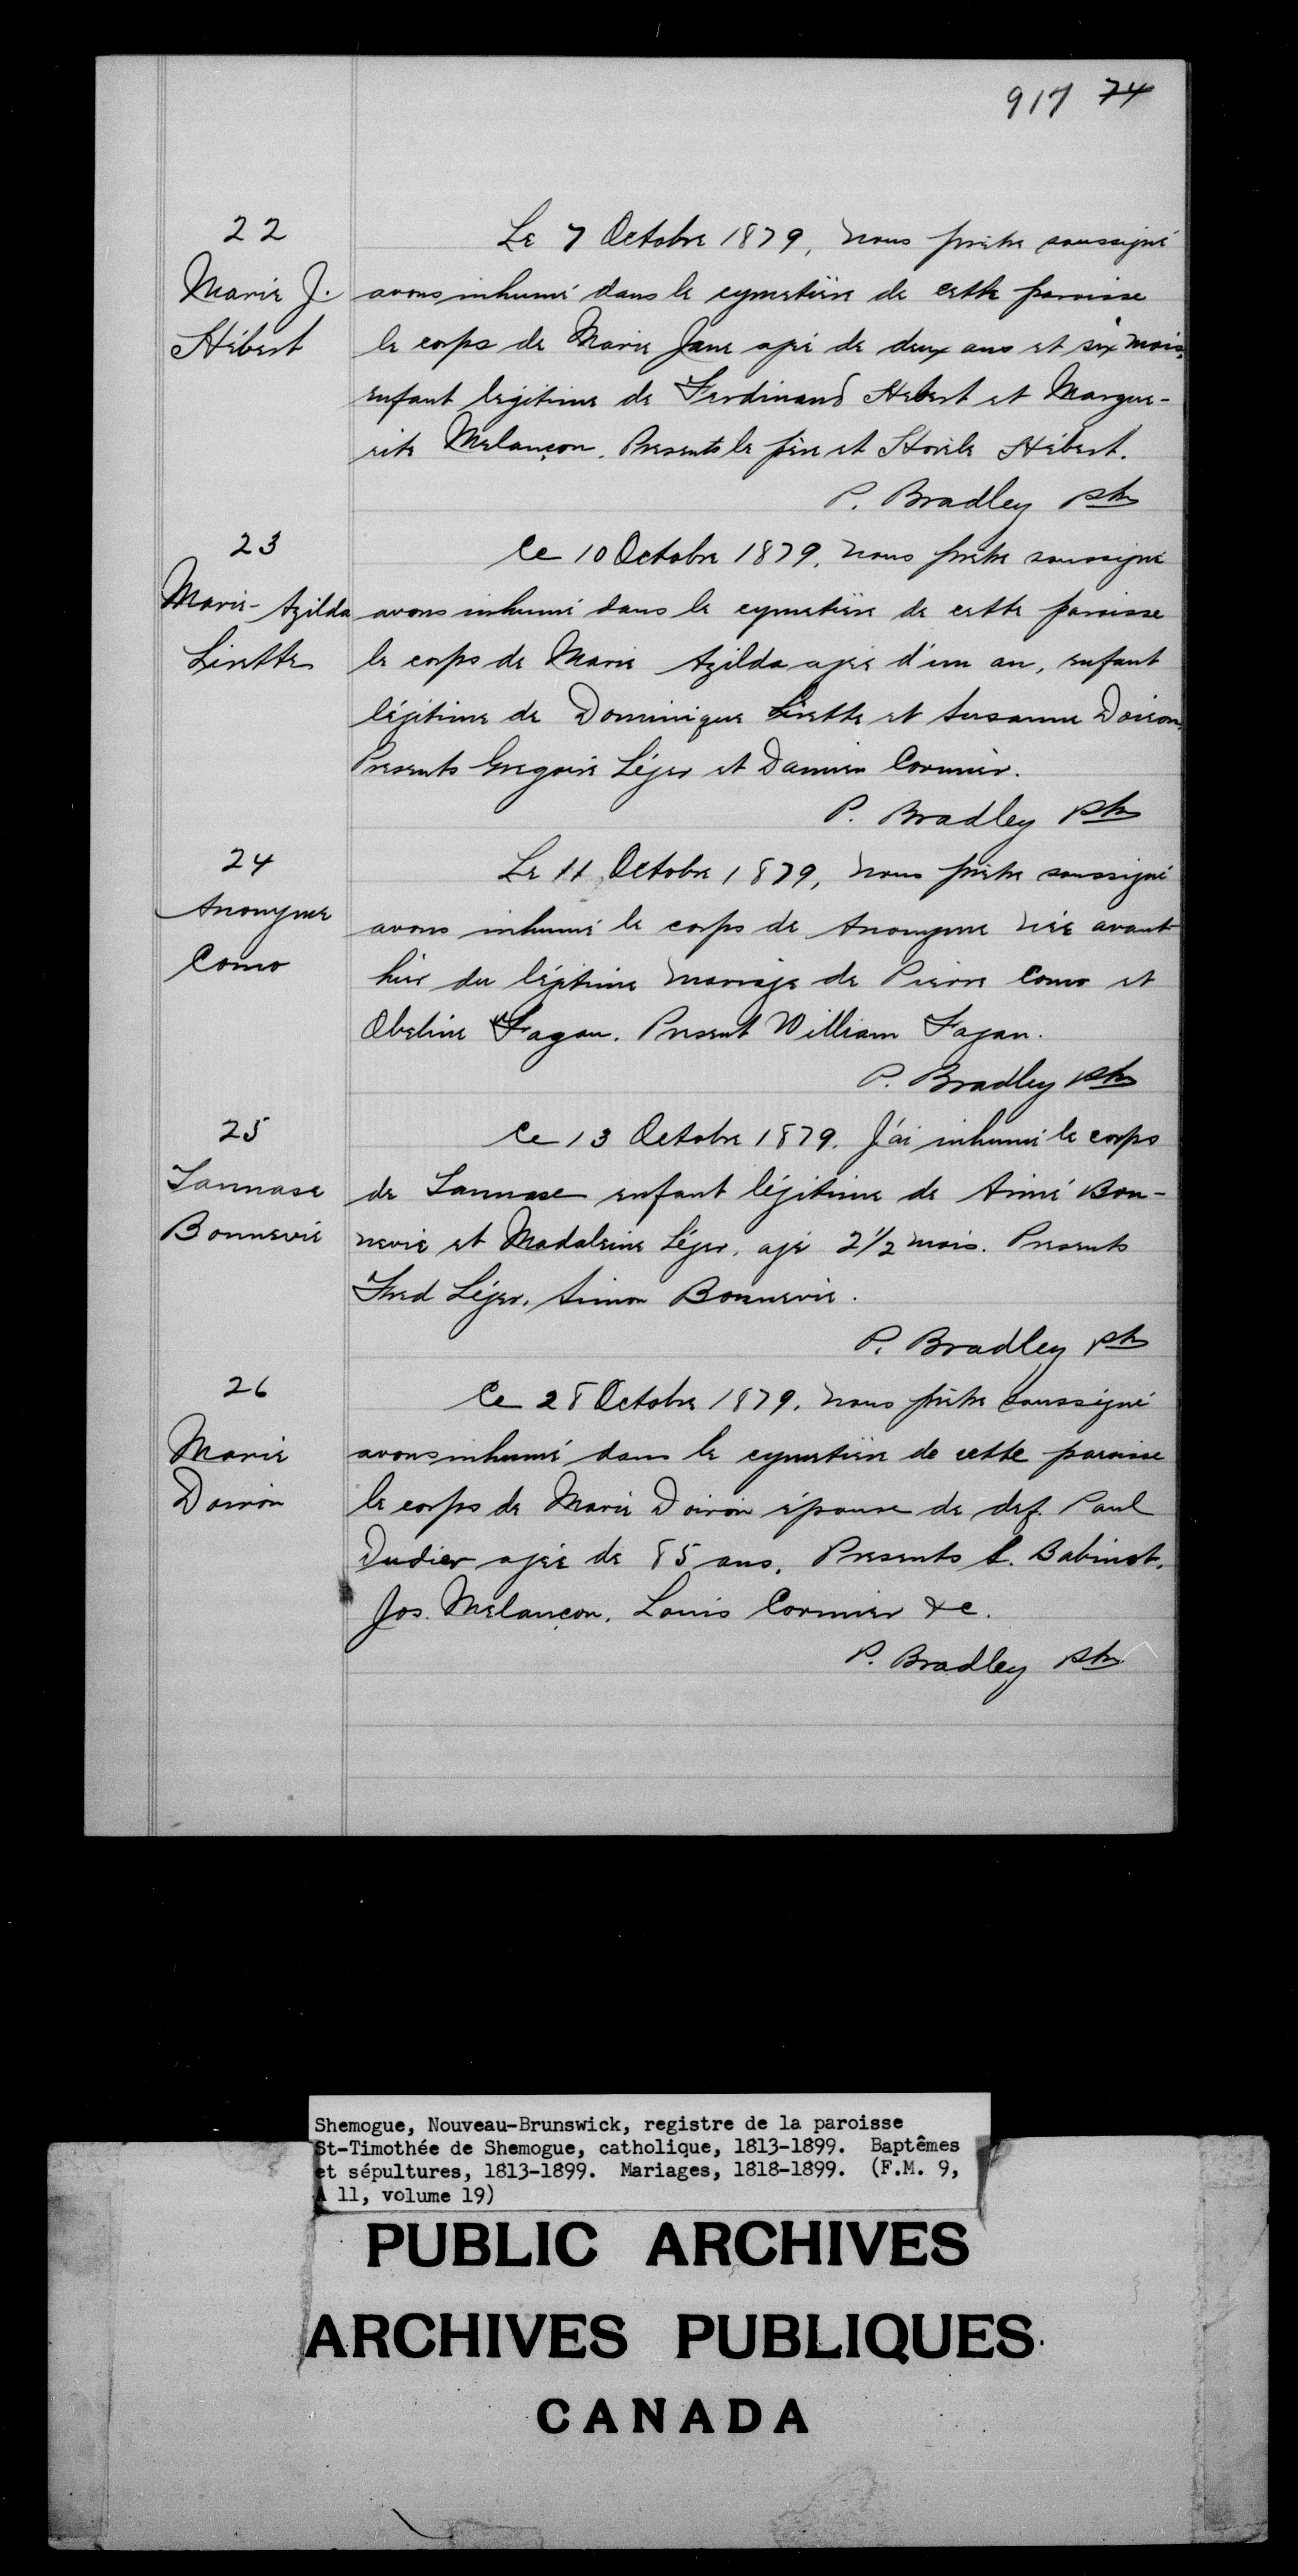 917 74
22
Marie J.
Hébert
Le 7 Octobre 1879, nous prêtre soussigné
avons inhumé dans le cymetière de cette paroisse
le corps de Marie Jane agé de deux ans et six mois,
enfant legitime de Ferdinand Hebert et Margue-
rite Melançon. Presents le père et Hébert.
P. Bradley ptre
23
Marie-Azilda
Lirette
Ce 10 Octobre 1879. nous prêtre soussigné
avons inhumé dans le cymetière de cette paroisse
le corps de Marie Azilda agée d'un an, enfant
légitime de Dominique Lirette et Susanne Doiron.
Presents Gregoire Léger et Damien Cormier.
P. Bradley ptre
24
Anonyme
Como
Le 11 Octobre 1879, nous prêtre soussigné
avons inhumé le corps de Anonyme née avant
hier du légitime mariage de Pierre Como et
Obeline Fagan. Present William Fagan.
P. Bradley ptre
25
Tannase
Bonnevie
Ce 13 Octobre 1879. J'ai inhumé le corps
de Tannase enfant légitime de Aimé Bon-
nevie et Madaleine Léger, agé 2 1/2 mois. Presents
Fred Léger, Simon Bonnevie.
P. Bradley ptre
26
Marie
Doiron
Ce 28 Octobre 1879. nous prêtre soussigné
avons inhumé dans le cymetière de cette paroisse
le corps de Marie Doiron épouse de def. Paul
Dudier agée de 85 ans. Presents L. Babinot,
Jos. Melançon, Louis Cormier &c.
P. Bradley ptre
Shemogue, Nouveau-Brunswick, registre de la paroisse
St-Timothée de Shemogue, catholique, 1813-1899. Baptêmes
et sépultures, 1813-1899. Mariages, 1818-1899. (F.M. 9,
A 11, volume 19)
PUBLIC ARCHIVES
ARCHIVES PUBLIQUES
CANADA